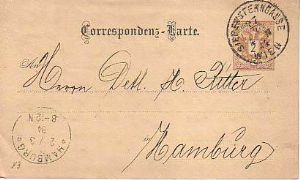 Correspondenz-Karte.
SIEBENSTERNGASSE
WIEN
Herren Dett. H. Ritter
Hamburg
HAMBURG
2/3
84
8-12 N